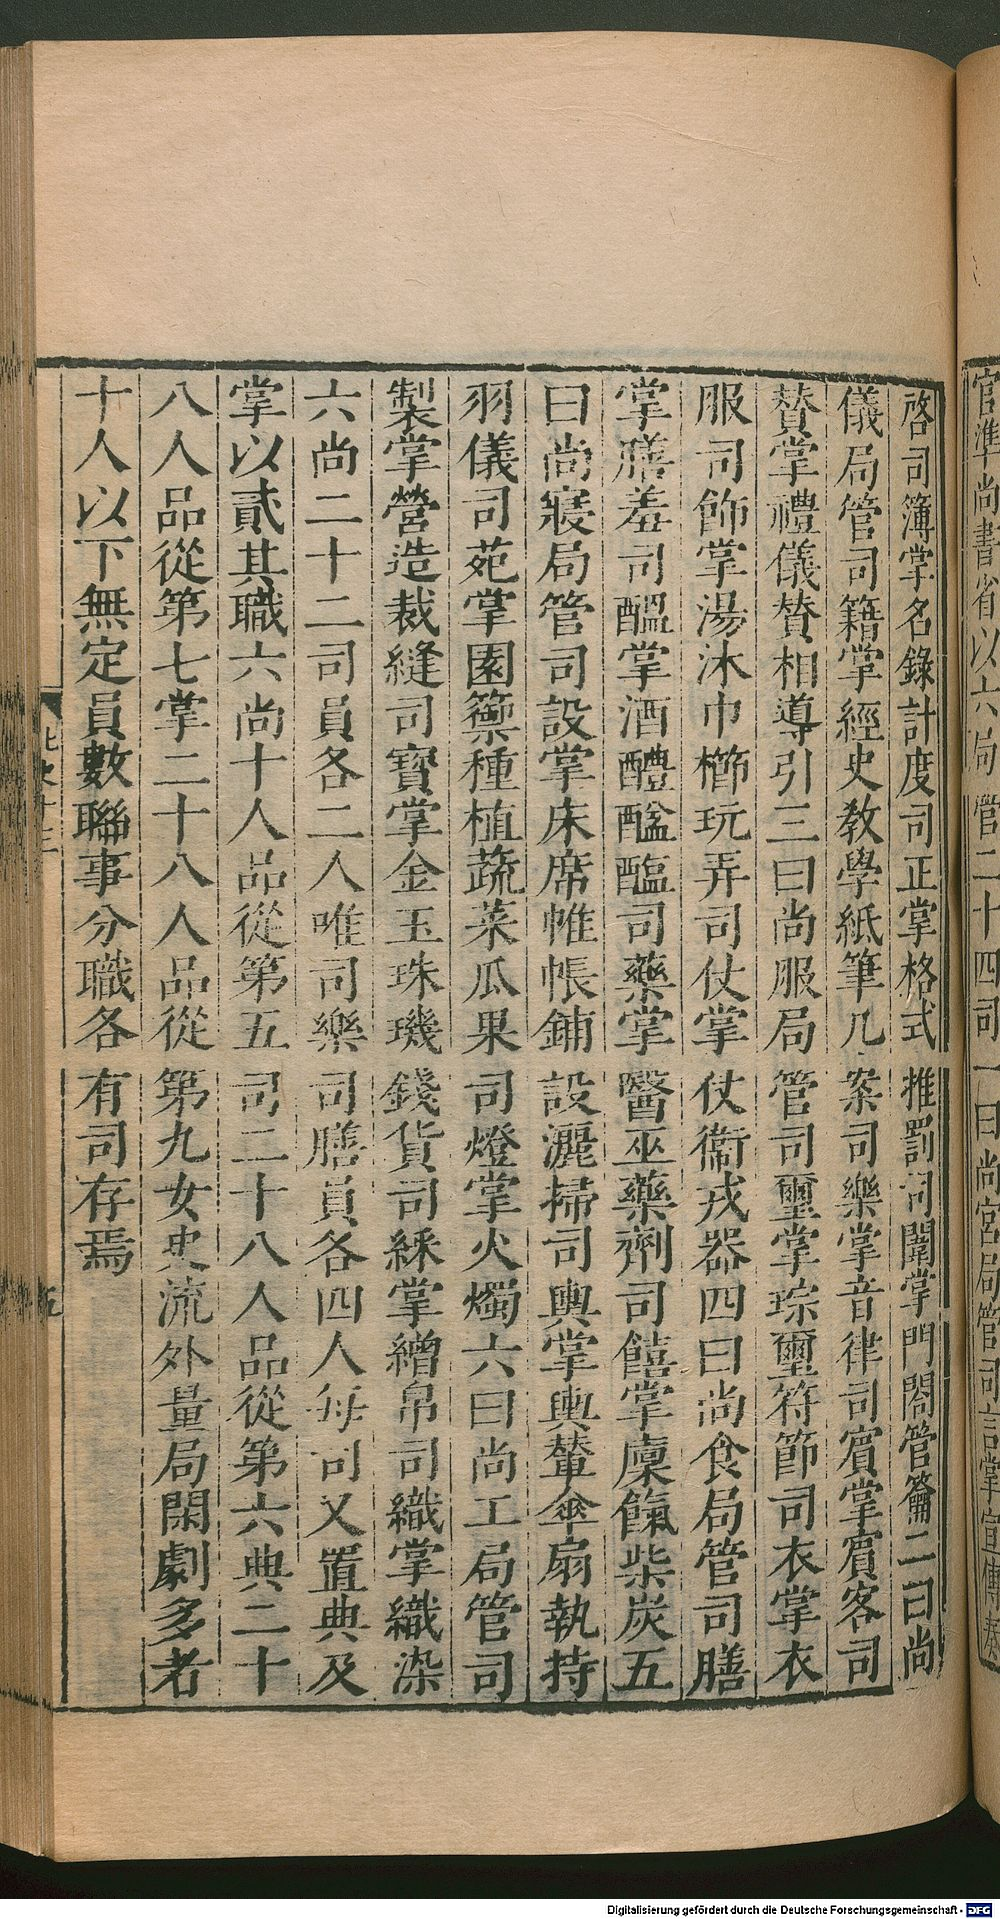 官準尚書省以六局管二十四司一曰尚宮局管司言掌宣傳奏
啓司簿掌名錄計度司正掌格式推罰司闈掌門閤管籥二曰尚
儀局管司籍掌經史教學紙筆几案司樂掌音律司賓掌賓客司
贊掌禮儀贊相導引三曰尚服局管司璽掌琮璽符節司衣掌衣
服司飾掌湯沐巾櫛玩弄司仗掌仗衞戎器四曰尚食局管司膳
掌膳羞司醞掌酒醴醯醢司藥掌醫巫藥劑司饎掌廩餼柴炭五
曰尚寢局管司設掌床席帷帳鋪設灑掃司輿掌輿輦傘扇執持
羽儀司苑掌園籞種植蔬菜瓜果司燈掌火燭六曰尚工局管司
製掌營造裁縫司寶掌金玉珠璣錢貨司綵掌繒帛司織掌織染
六尚二十二司員各二人唯司樂司膳員各四人每司又置典及
掌以貳其職六尚十人品從第五司二十八人品從第六典二十
八人品從第七掌二十八人品從第九女史流外量局閑劇多者
十人以下無定員數聯事分職各有司存焉
北史十三
五
Digitalisierung gefördert durch die Deutsche Forschungsgemeinschaft - DFG